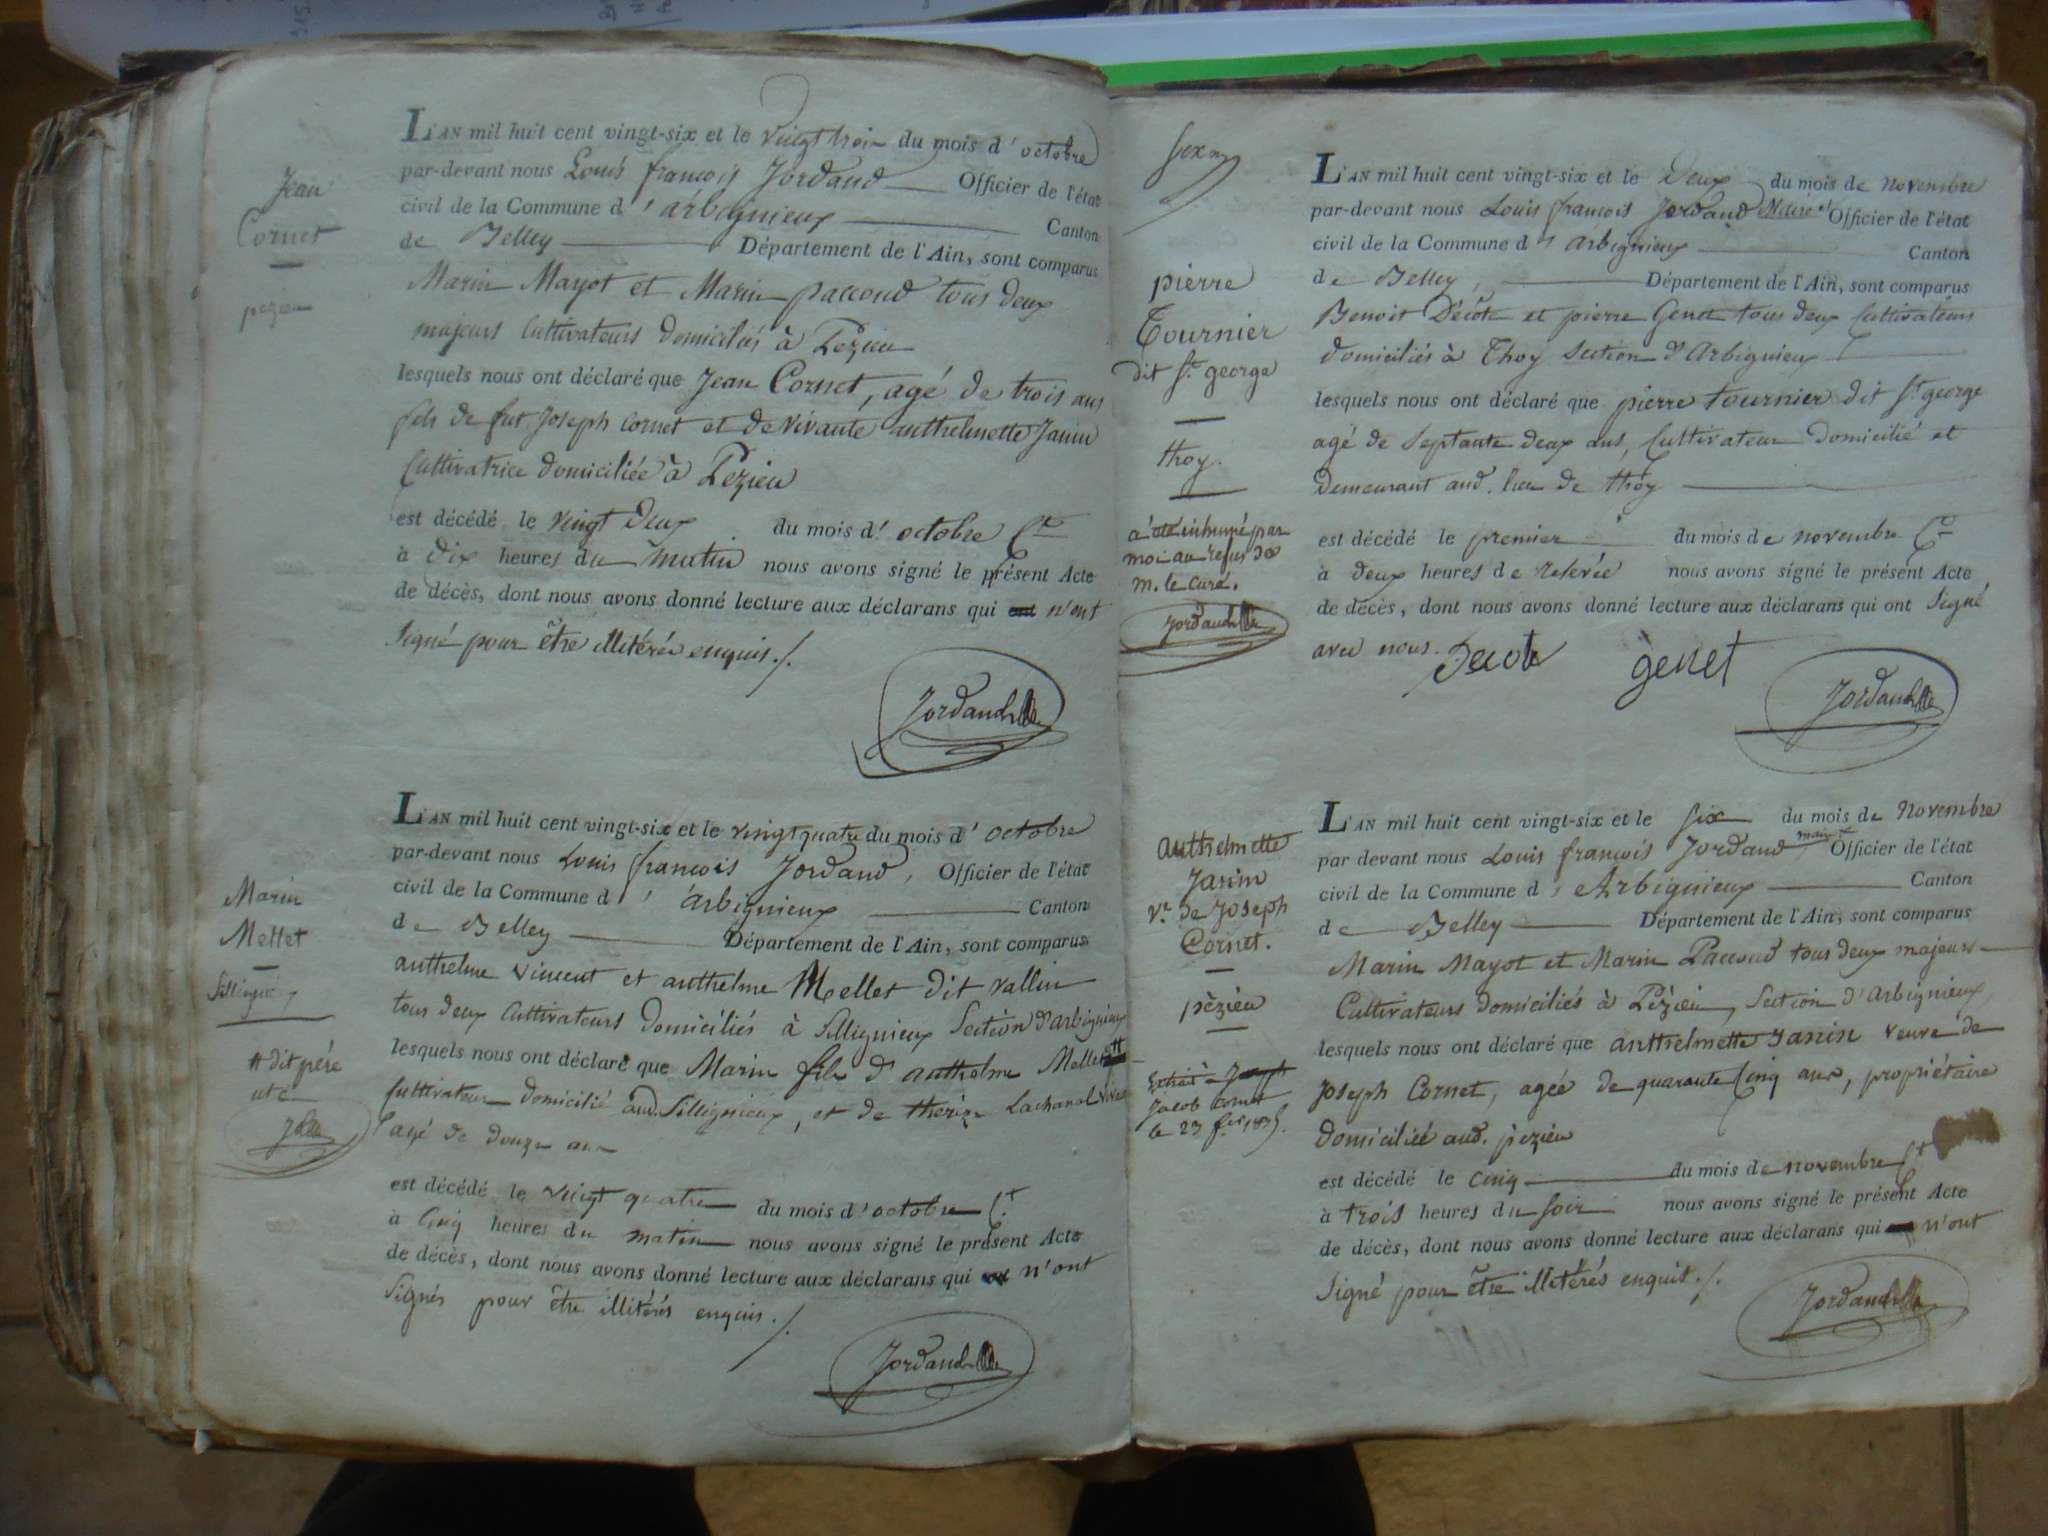 Jean
Cornet
pezieu
L'AN mil huit cent vingt-six et le vingt trois du mois d'octobre
par-devant nous Louis françois Jordand Officier de l'état
civil de la Commune d'Arbignieux Canton
de Belley Département de l'Ain, sont comparus
Marin Mayot et Marin paccoud tous deux
majeurs Cultivateurs domiciliés à Pezieu
lesquels nous ont déclaré que Jean Cornet, agé de trois ans
fils de feu Joseph cornet et de vivante anthelmette Janin
Cultivatrice domiciliée à Pezieu
est décédé le vingt deux du mois d'octobre Ct
à dix heures du matin nous avons signé le présent Acte
de décès, dont nous avons donné lecture aux déclarans qui ont n'ont
signé pour être illitérés enquis ./.
Jordand
Marin
Mellet
Sillignieux
# dit père
ute
L'AN mil huit cent vingt-six et le vingt quatre du mois d'octobre
par-devant nous Louis françois Jordand, Officier de l'état
civil de la Commune d'Arbignieux Canton
de Belley Département de l'Ain, sont comparus
anthelme vincent et anthelme Mellet dit vallin
tous deux Cultivateurs domiciliés à Sillignieux Section d'arbignieux
lesquels nous ont déclaré que Marin fils d'anthelme Mellet #
Cultivateur domicilié aud. Sillignieux, et de therèze Lachanal
agé de douze ans
est décédé le vingt quatre du mois d'octobre Ct.
à Cinq heures du matin nous avons signé le présent Acte
de décès, dont nous avons donné lecture aux déclarans qui ont n'ont
Signés pour être illitérés enquis ./.
Jordand
pierre
Tournier
dit St. george
thoy.
a été inhumé par
moi au refus de
M. le Curé.
Jordand
L'AN mil huit cent vingt-six et le Deux du mois de novembre
par-devant nous Louis françois Jordand Maire et Officier de l'état
civil de la Commune d'Arbignieux Canton
de Belley, Département de l'Ain, sont comparus
Benoit Décot et pierre Genet tous deux Cultivateurs
domiciliés à Thoy Section d'Arbignieux
lesquels nous ont déclaré que pierre tournier dit St george
agé de Septante deux ans, Cultivateur domicilié et
Demeurant aud. lieu de thoy
est décédé le premier du mois de novembre Ct
à deux heures de relevée nous avons signé le présent Acte
de décès, dont nous avons donné lecture aux déclarans qui ont Signé
avec nous. Decot genet
Jordand
anthelmette
Janin
Ve. de Joseph
Cornet.
pèzieu
Extrait à Joseph
Jacob Cornet
le 23
L'AN mil huit cent vingt-six et le six du mois de novembre
par devant nous Louis françois Jordand maire et Officier de l'état
civil de la Commune d'Arbignieux Canton
de Belley Département de l'Ain, sont comparus
Marin Mayot et Marin Paccoud tous deux majeurs
Cultivateurs domiciliés à Pézieu, Section d'Arbignieux
lesquels nous ont déclaré que anthelmette Janin veuve de
Joseph Cornet, agée de quarante Cinq ans, propriétaire
domiciliée aud. pezieu
est décédé le cinq du mois de novembre Ct
à trois heures du soir nous avons signé le présent Acte
de décès, dont nous avons donné lecture aux déclarans qui ont n'ont
Signé pour être illétérés enquis ./.
Jordand